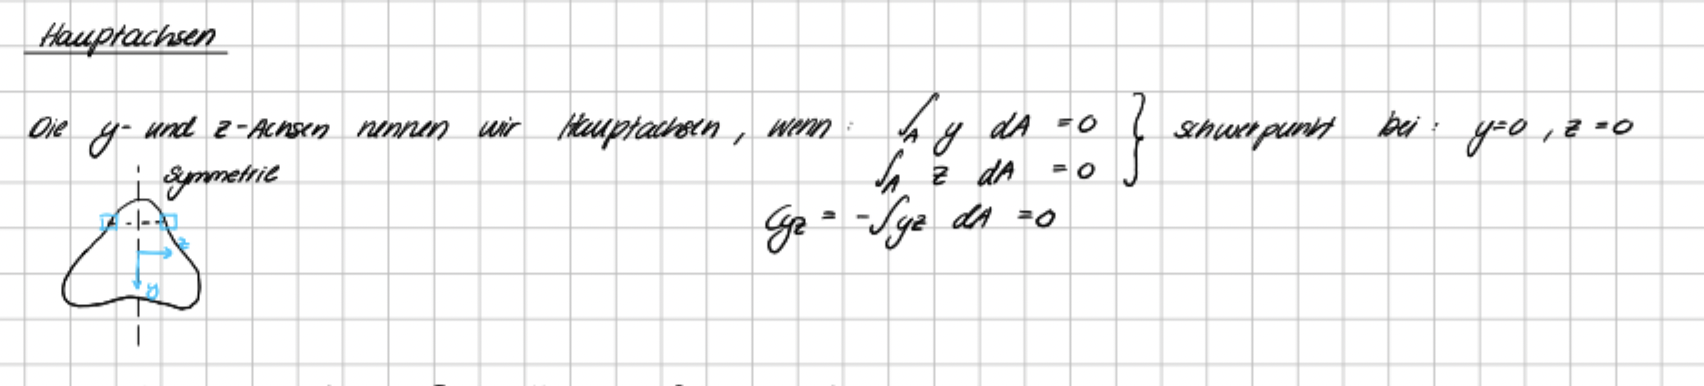 Hauptachsen
Die y- und z-Achsen nennen wir Hauptachsen, wenn: ∫_A y dA = 0 } schwerpunkt bei: y=0, z=0
∫_A z dA = 0
Symmetrie
Cyz = -∫yz dA = 0
z
y